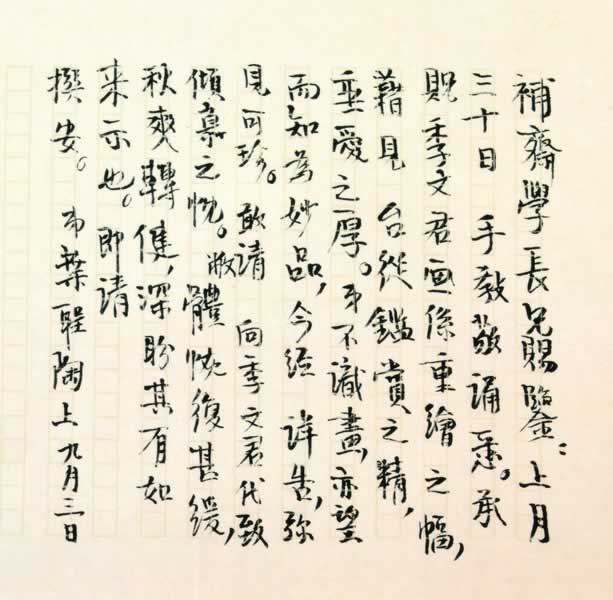 補齋學長兄賜鑒：上月
三十日　手教敬誦悉。承
貺季文君画係重繪之幅，
藉見　台從鑑賞之精，
垂愛之厚。弟不識畫，亦望
而知為妙品，今經　詳告，弥
見可珍。敢請　向季文君代致
傾襄之忱。敝體恢復甚緩，
秋爽轉健，深盼其有如
来示也。即请
撰安。　弟葉聖陶上九月三日